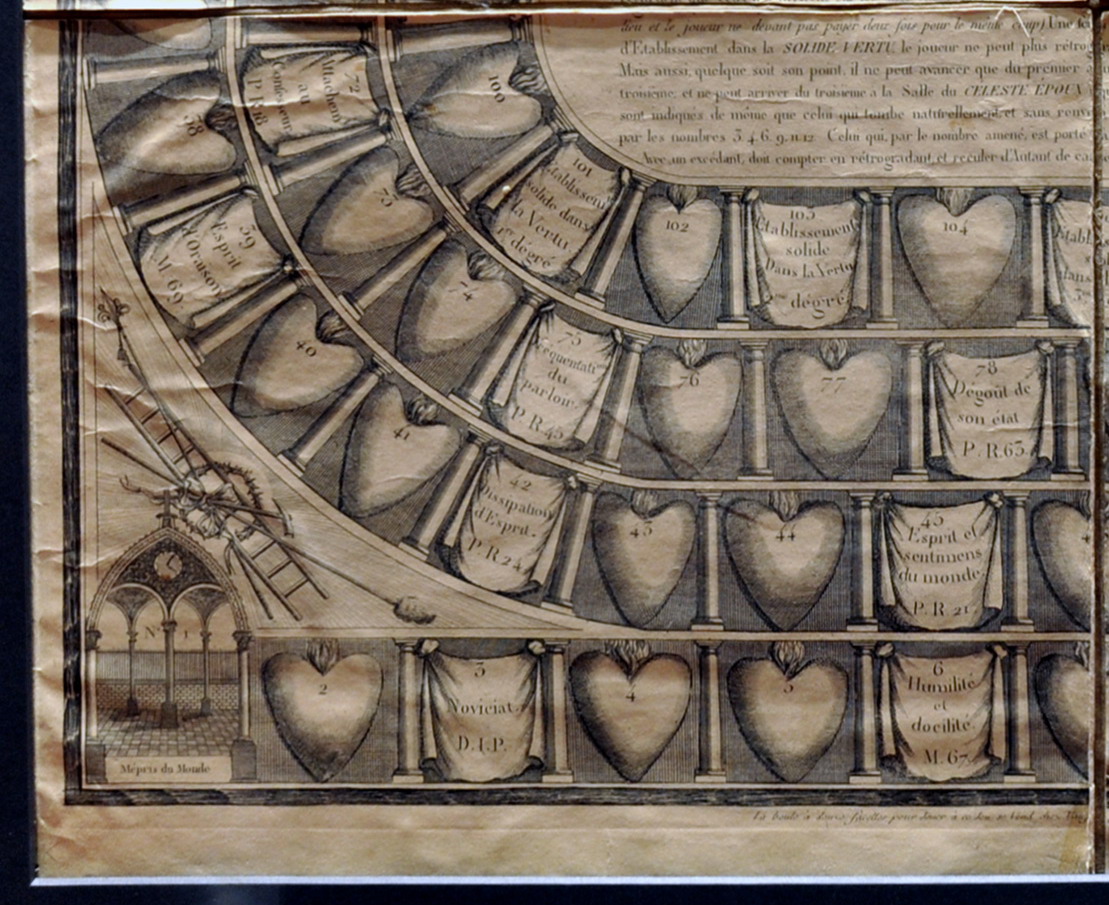 lieu et le joueur ne devant pas payer deux fois pour le même coup) Une fo
d'Etablissement dans la SOLIDE VERTU, le joueur ne peut plus rétrog
Mais aussi, quelque soit son point, il ne peut avancer que du premier a
troisieme, et ne peut arriver du troisieme a la Salle du CELESTE EPOUX
sont indiqués de même que celui qui tombe naturellement et sans renv
par les nombres 3. 4. 6. 9. 11. 12 Celui qui, par le nombre amené, est porté
Avec un excédant, doit compter en rétrogradant, et reculer d'Autant de ca
100
72
Attachem.t
au
Confesseur
38
101
Etablissem.t
solide dans
la Vertu.
1.er dégré
102
103
Etablissement
solide
Dans la Vertu
dégré
104
Etabl
dans
73
39
Esprit
d'Oraison
M. 69
74
75
du
parloir.
P. R. 45
76
77
78
Dégoût de
son état
P. R. 63.
40
41
42
Dissipation
d'Esprit.
P. R. 24
43
44
45
Esprit et
sentimens
du monde
P. R. 21.
N.o 1
Mépris du Monde
2
3
Noviciat.
D. I. P.
4
5
6
Humilité
et
docilité.
M. 67
pour Jouer à ce Jeu, se Vend chez